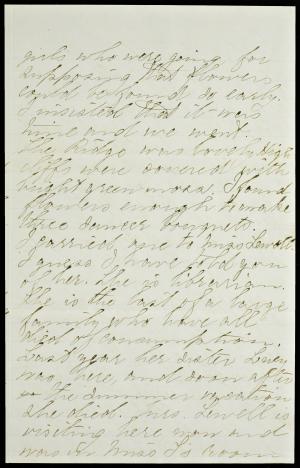 girls who were going for
supposing that flowers
could be found so early.
I insisted that it was
time and we went.
The Ridge was lovely. High
cliffs were covered with
bright green moss. I found
flowers enough to make
three bouquets.
I carried one to Miss Sewell.
I guess I have told you
of her. She is librarian.
She is the last of a large
family who have all
died of consumption.
Last year her sister Lucy
was here, and soon after
the summer vacation
she died. Mrs. Sewell is
visiting here now and
was in Miss S's room